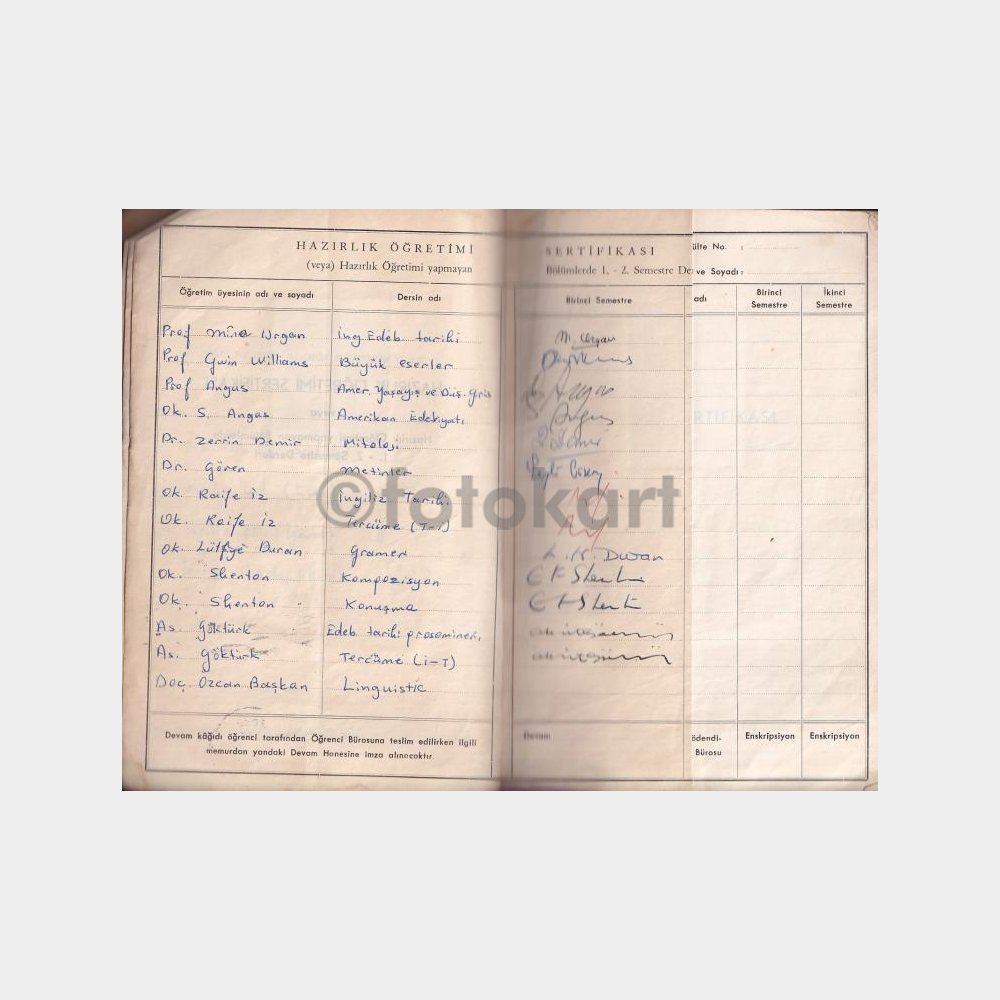 HAZIRLIK ÖĞRETİMİ SERTİFİKASI
(veya) Hazırlık Öğretimi yapmayan Bölümlerde 1. - 2. Semestre De
ülte No. :
ve Soyadı :
Öğretim üyesinin adı ve soyadı Dersin adı Birinci Semestre adı Birinci Semestre İkinci Semestre
Prof Mîna Urgan İng Edeb. tarihi M. Urgan
Prof Gwin Williams Büyük eserler
Prof Angus Amer. Yaşayış ve Düş. Griş
Ok. S. Angas Amerikan Edebiyatı
Dr. Zerrin Demir Mitoloji
Dr. Gören Metinler
Ok. Raife İz İngiliz Tarihi
Ok. Raife İz Tercüme (T-İ)
Ok. Lütfiye Duran Gramer L. K. Duran
Ok. Shenton Kompozisyon
Ok. Shenton Konuşma
As. Göktürk Edeb. tarihi proseminer
As. Göktürk Tercüme (i-T)
Doç Özcan Başkan Linguistic
Devam kâğıdı öğrenci tarafından Öğrenci Bürosuna teslim edilirken ilgili
memurdan yandaki Devam Hanesine imza alınacaktır.
Devam
ödendi- Bürosu
Enskripsiyon Enskripsiyon
©fotokart